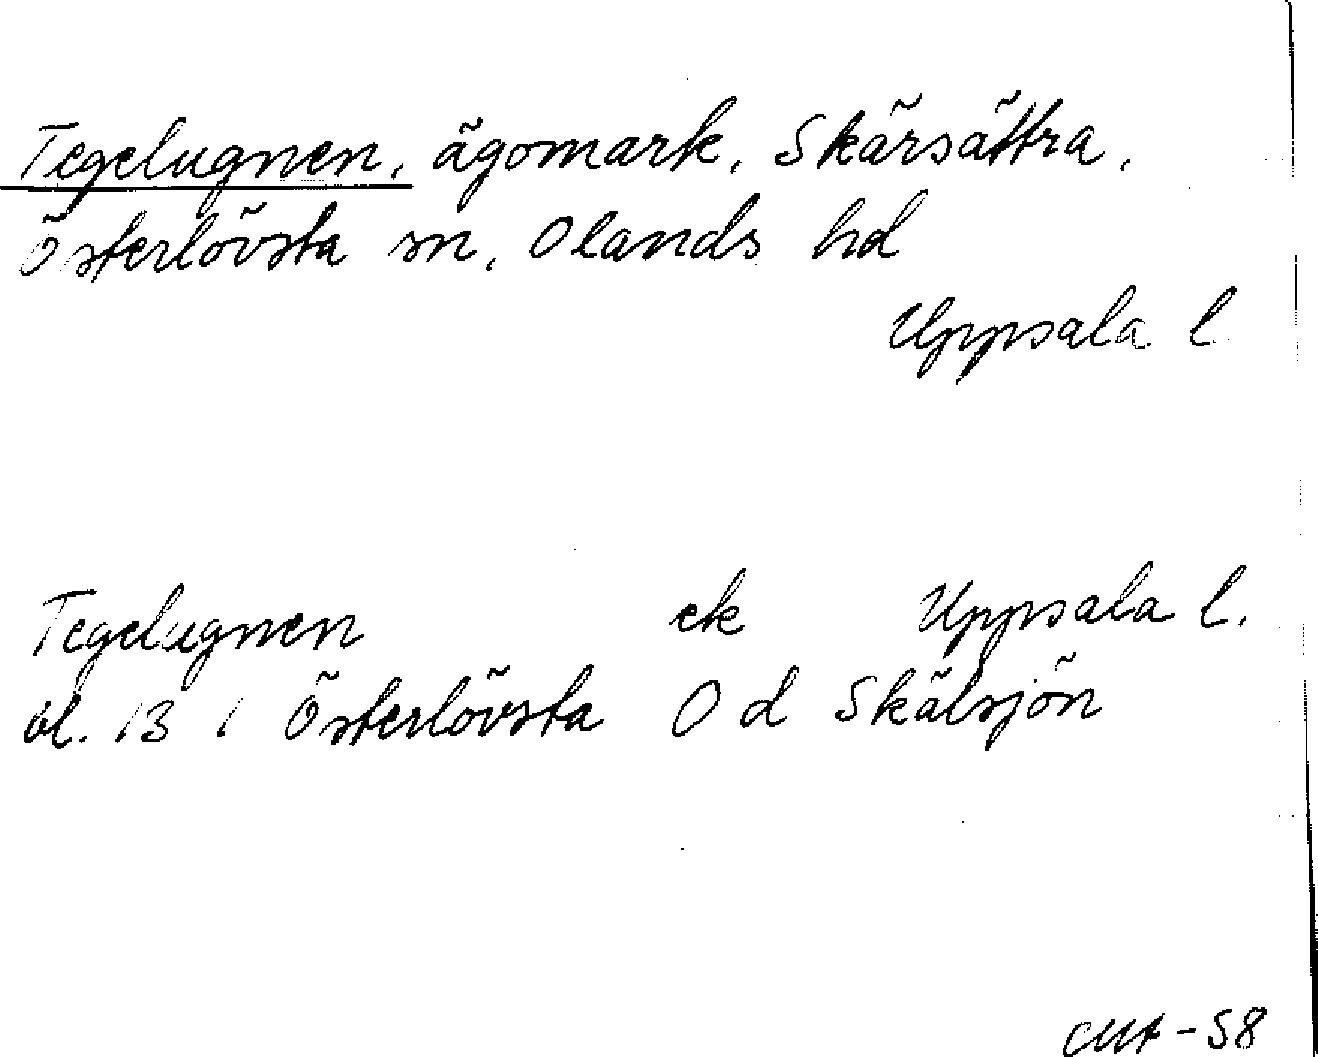 Tegelugnen, ägomark, Skärsättra,
Österlövsta sn, Olands hd
Uppsala l
Tegelugnen ek Uppsala l.
bl. 13 i Österlövsta O d Skälsjön
-58